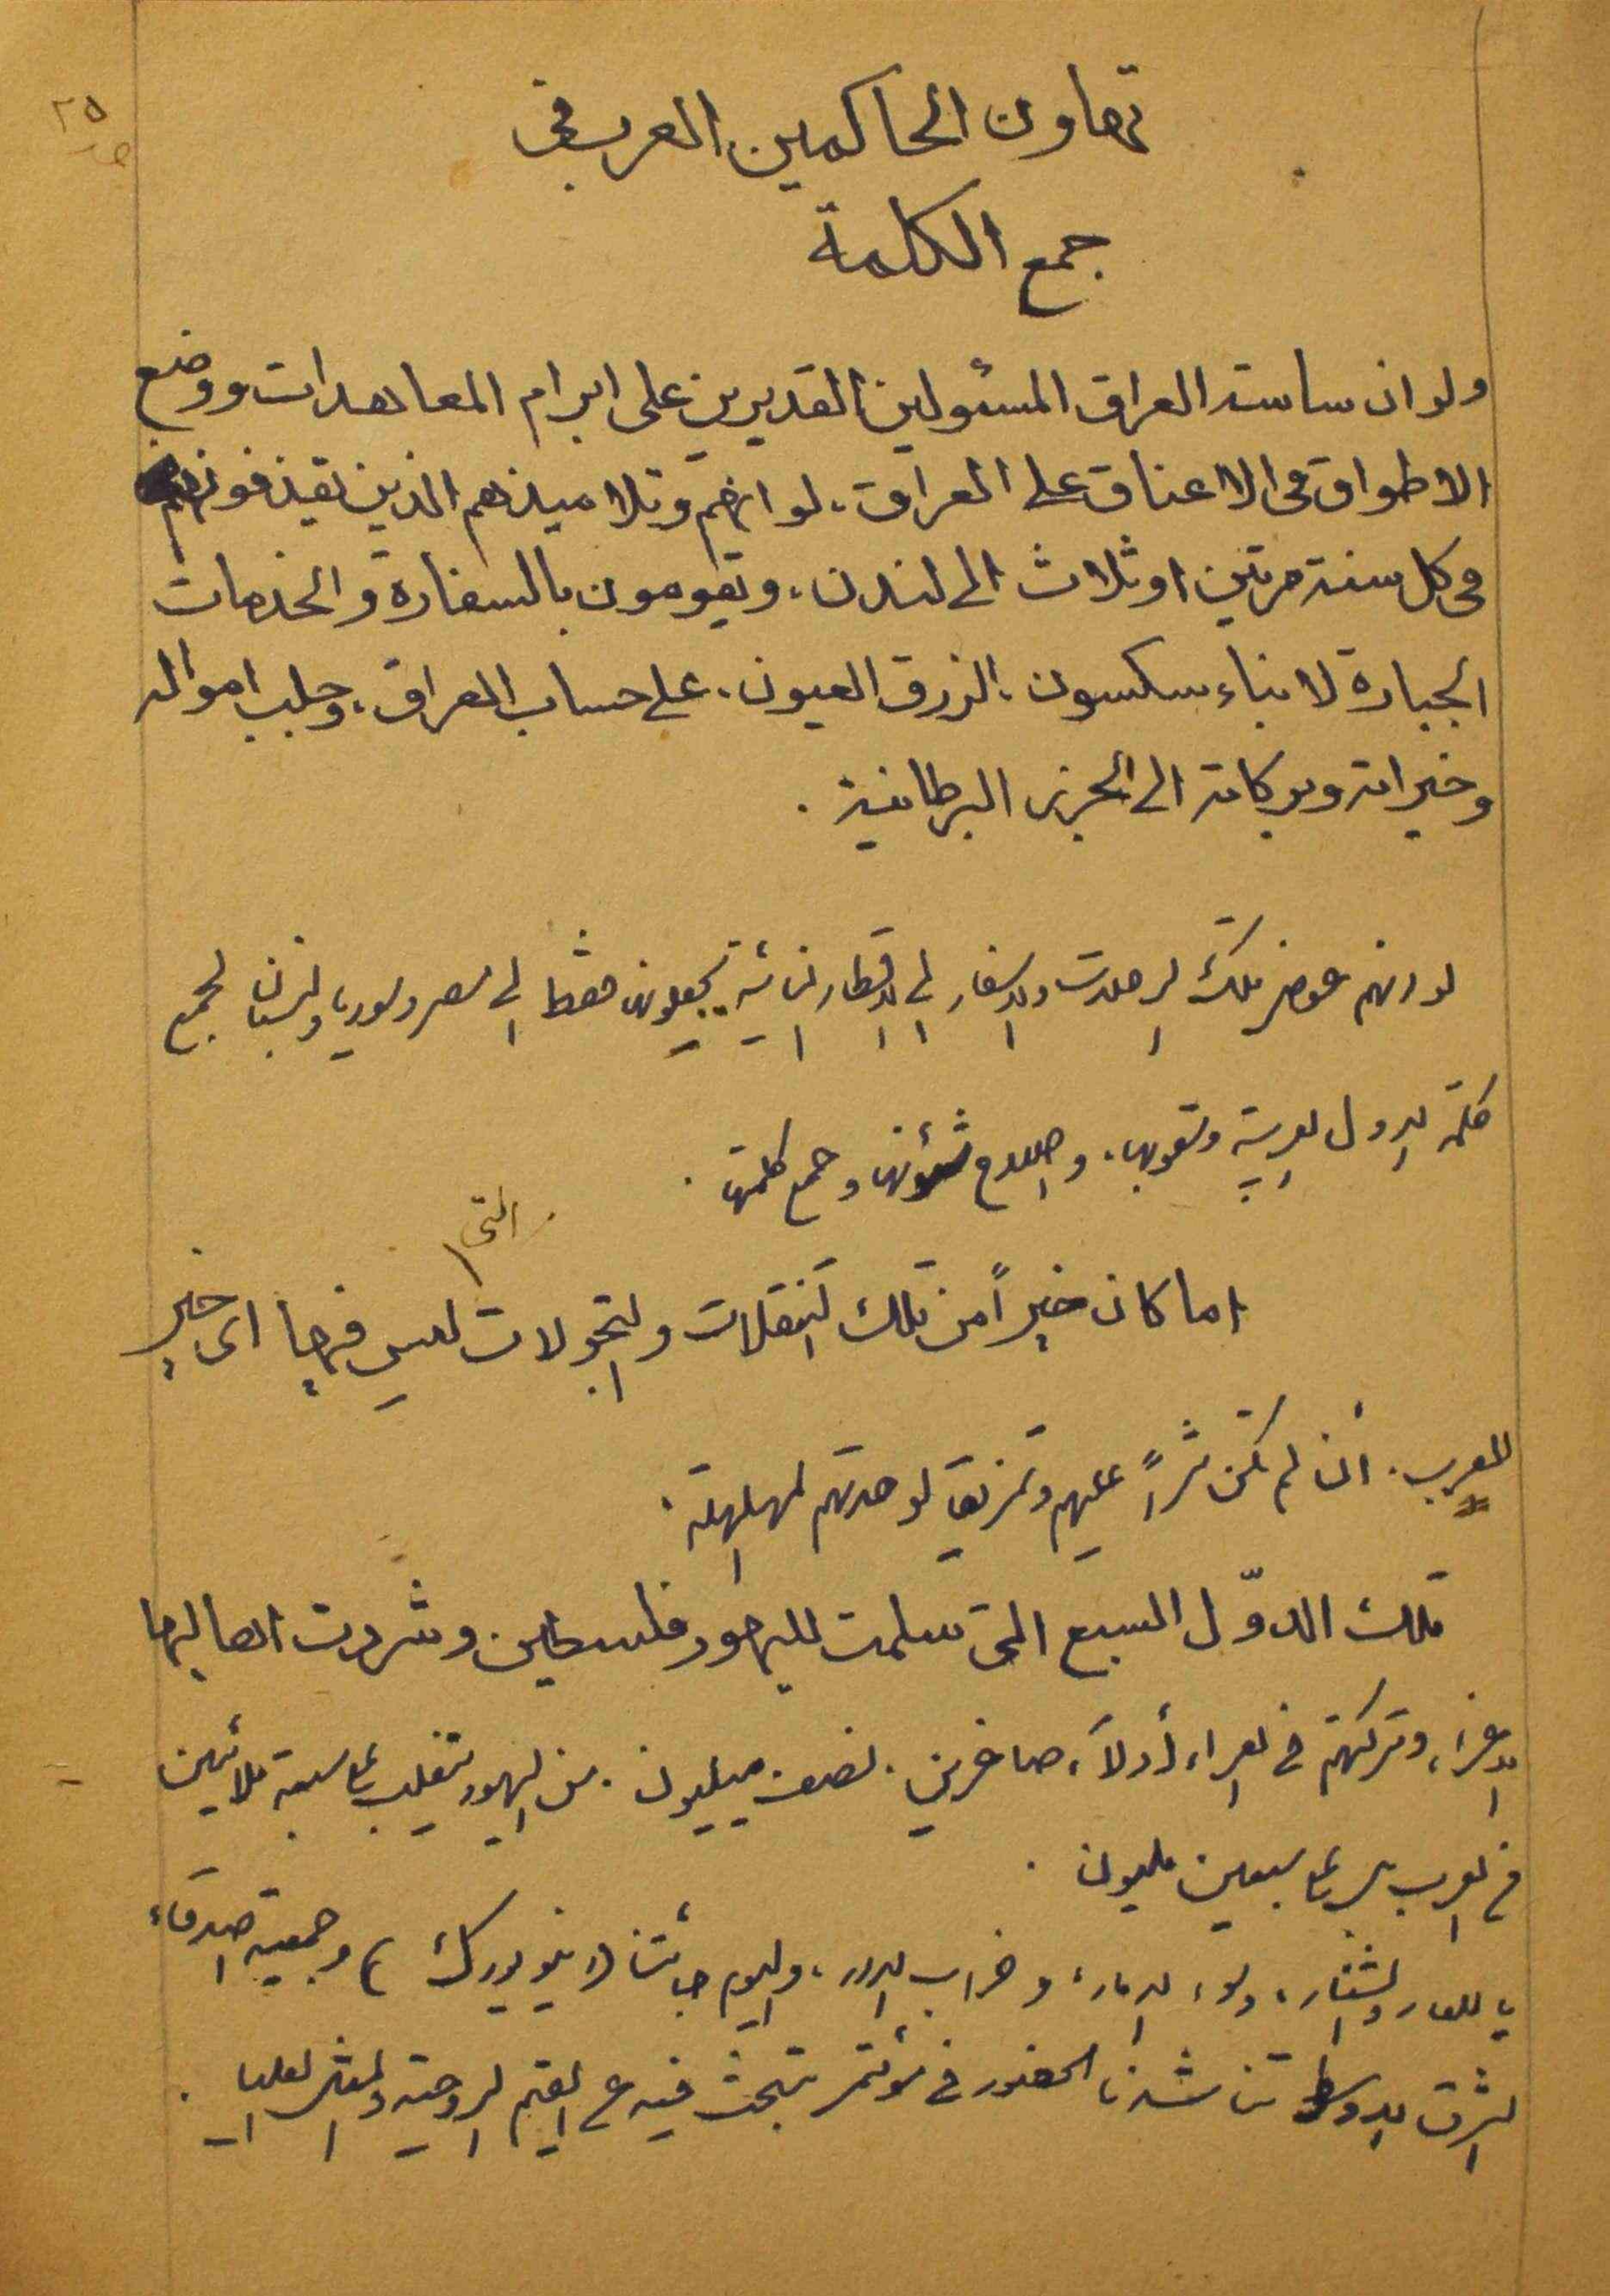 ٢٥
تهاون الحاكمين العرب في
جمع الكلمة
ولو ان ساسة العراق المسئولين القديرين على ابرام المعاهدات ووضع
الاطواق في الاعناق على العراق، لو انهم وتلاميذهم الذين يقذفونهم
في كل سنة مرتين او ثلاث الى لندن، ويقومون بالسفارة والخدمات
الجبارة لابناء سكسون، الزرق العيون، على حساب العراق، وجلب امواله
وخيراته وبركاته الى الجزر البرطانية .
لو انهم عوض تلك الرحلات والاسفار الى الاقطار النائية يجعلونها فقط الى مصر وسوريا ولبنان لجمع
كلمة الدول العربية وشعوبها، واصلاح شؤنها وجمع كلمتها .
التي
اما كان خيراً من تلك التنقلات والتجولات ليس فيها اى خير
للعرب. أن لم تكن شراً عليهم وتمزيقا لوحدتهم المهلهلة .
تلك الدوّل السبع التي سلمت لليهود فلسطين وشردت اهاليها
الاعزاء وتركتهم في العراء أذلآء صاغرين . نصف ميليون . من اليهود تتغلب على سبعة ملائين
من العرب بل على سبعين مليون .
يا للعار والشنار، ولواء الدمار، وخراب الديار، واليوم جائتنا (نيويورك) وجمعية اصدقاء
الشرق الاوسط تناشدنا الحضور في مؤتمر تبحث فيه عن القيم الروحية والمثل العليا .